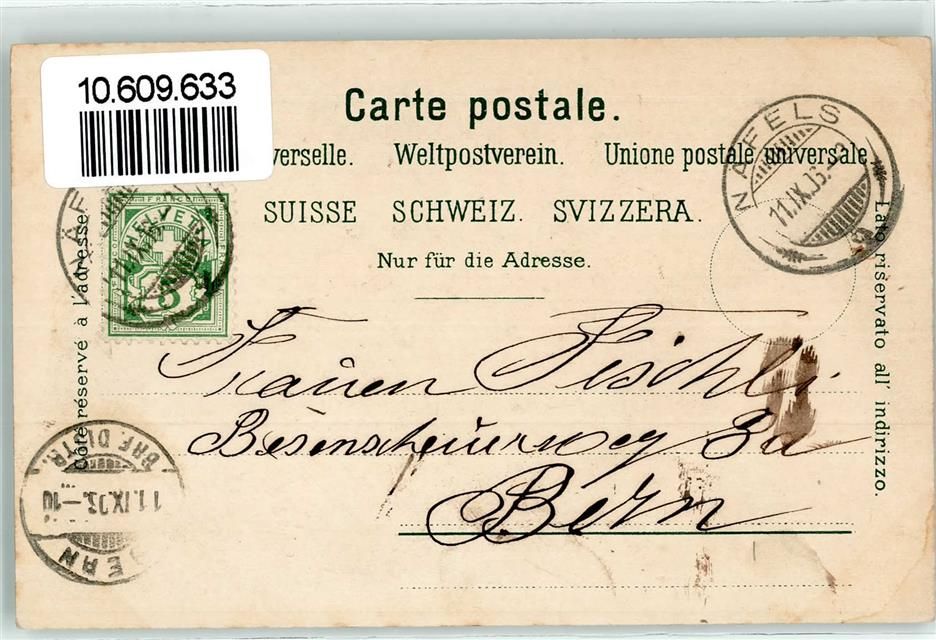 10.609.633
Carte postale.
verselle. Weltpostverein. Unione postale universale.
SUISSE SCHWEIZ. SVIZZERA.
Nur für die Adresse.
Côté réservé à l'adresse.
Lato riservato all' indirizzo.
NÄFELS
11.IX.03.
FRANCO
HELVETIA
5
Frauen Fischli
Besenscheuerweg 3a
Bern
BERN
11.IX.03.-10
BRF. DISTR.